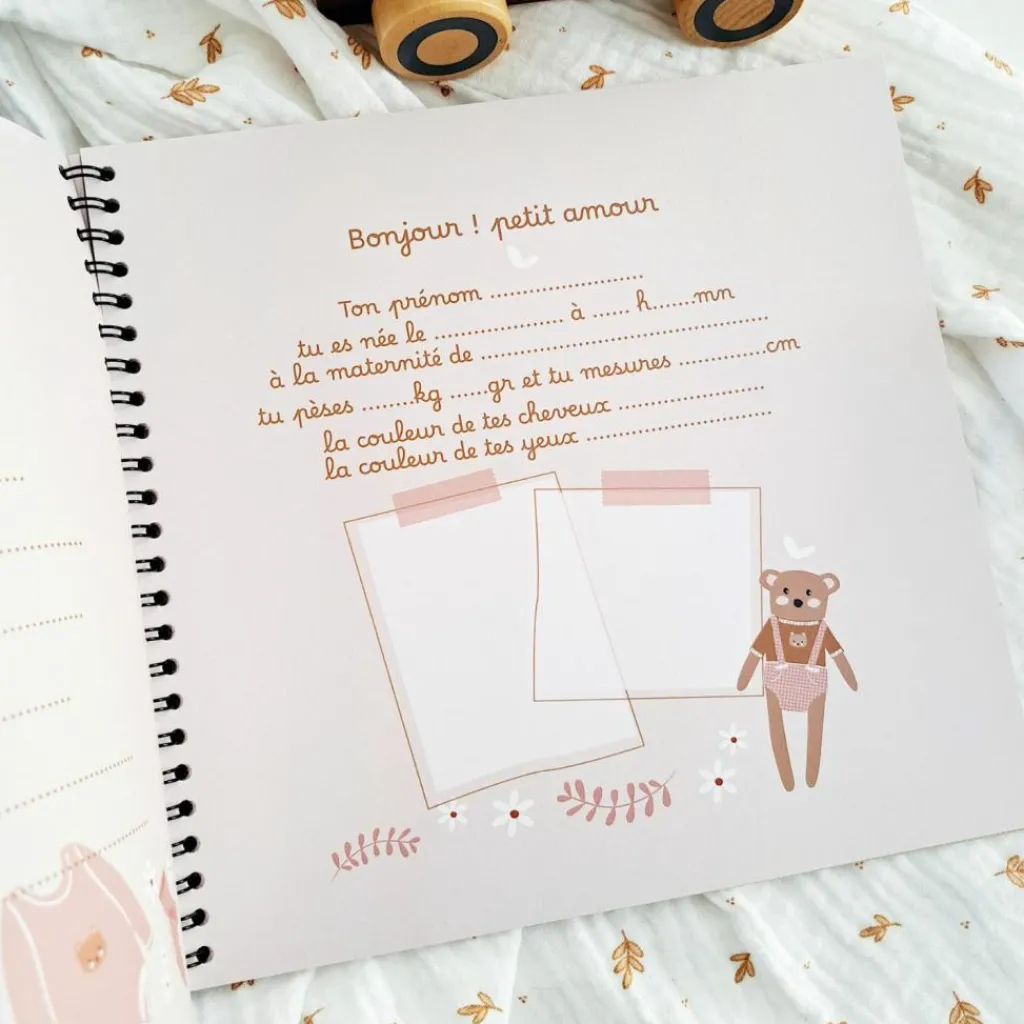 Bonjour ! petit amour
Ton prénom ........................
tu es née le .................... à ...... h.......mn
à la maternité de .............................................
tu pèses ........kg ......gr et tu mesures ..............cm
la couleur de tes cheveux .......................
la couleur de tes yeux .............................